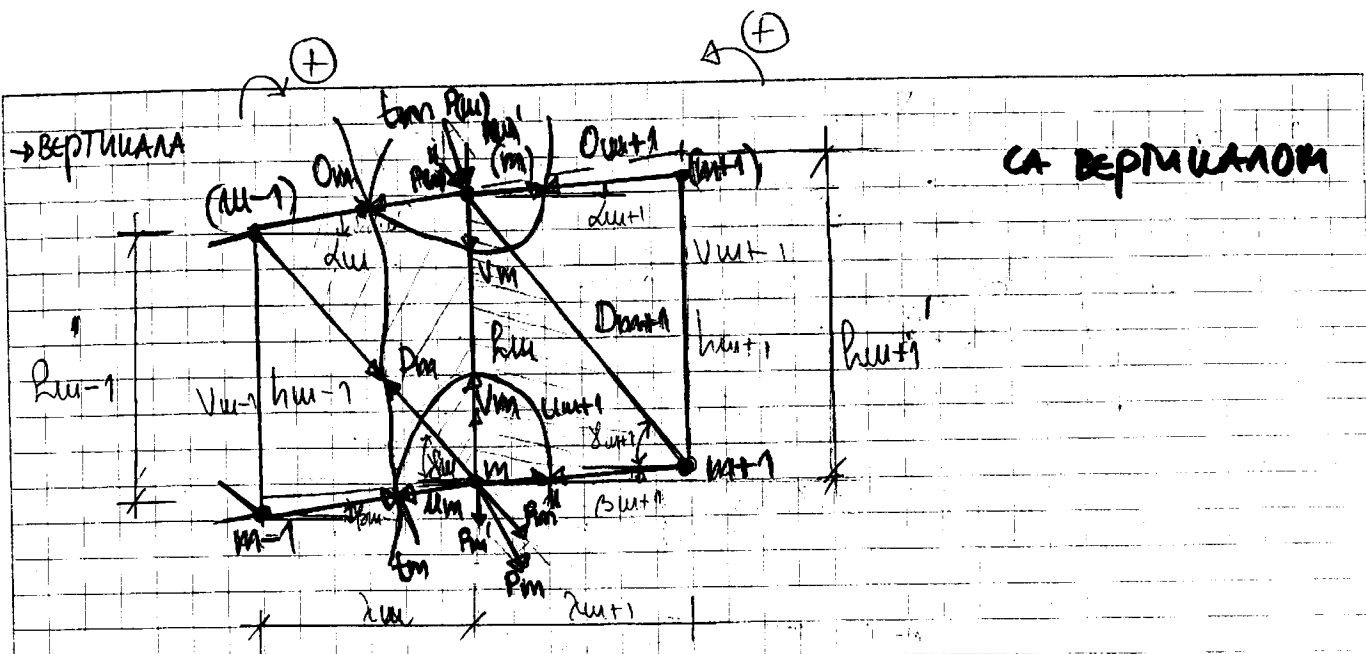 (+)
(+)
→ВЕРТИКАЛА
СА ВЕРТИКАЛОМ
tm P(m)
(m)
Om
Om+1
(m-1)
(m+1)
αm
αm+1
Vm
Vm+1
Dm+1
hm
hm+1
hm+1'
Dm
hm-1
Vm-1
hm-1
Vm
Um+1
γm
γm+1
m
m+1
Um
βm
βm+1
m-1
Pm'
Pm"
tm
Pm
λm
λm+1